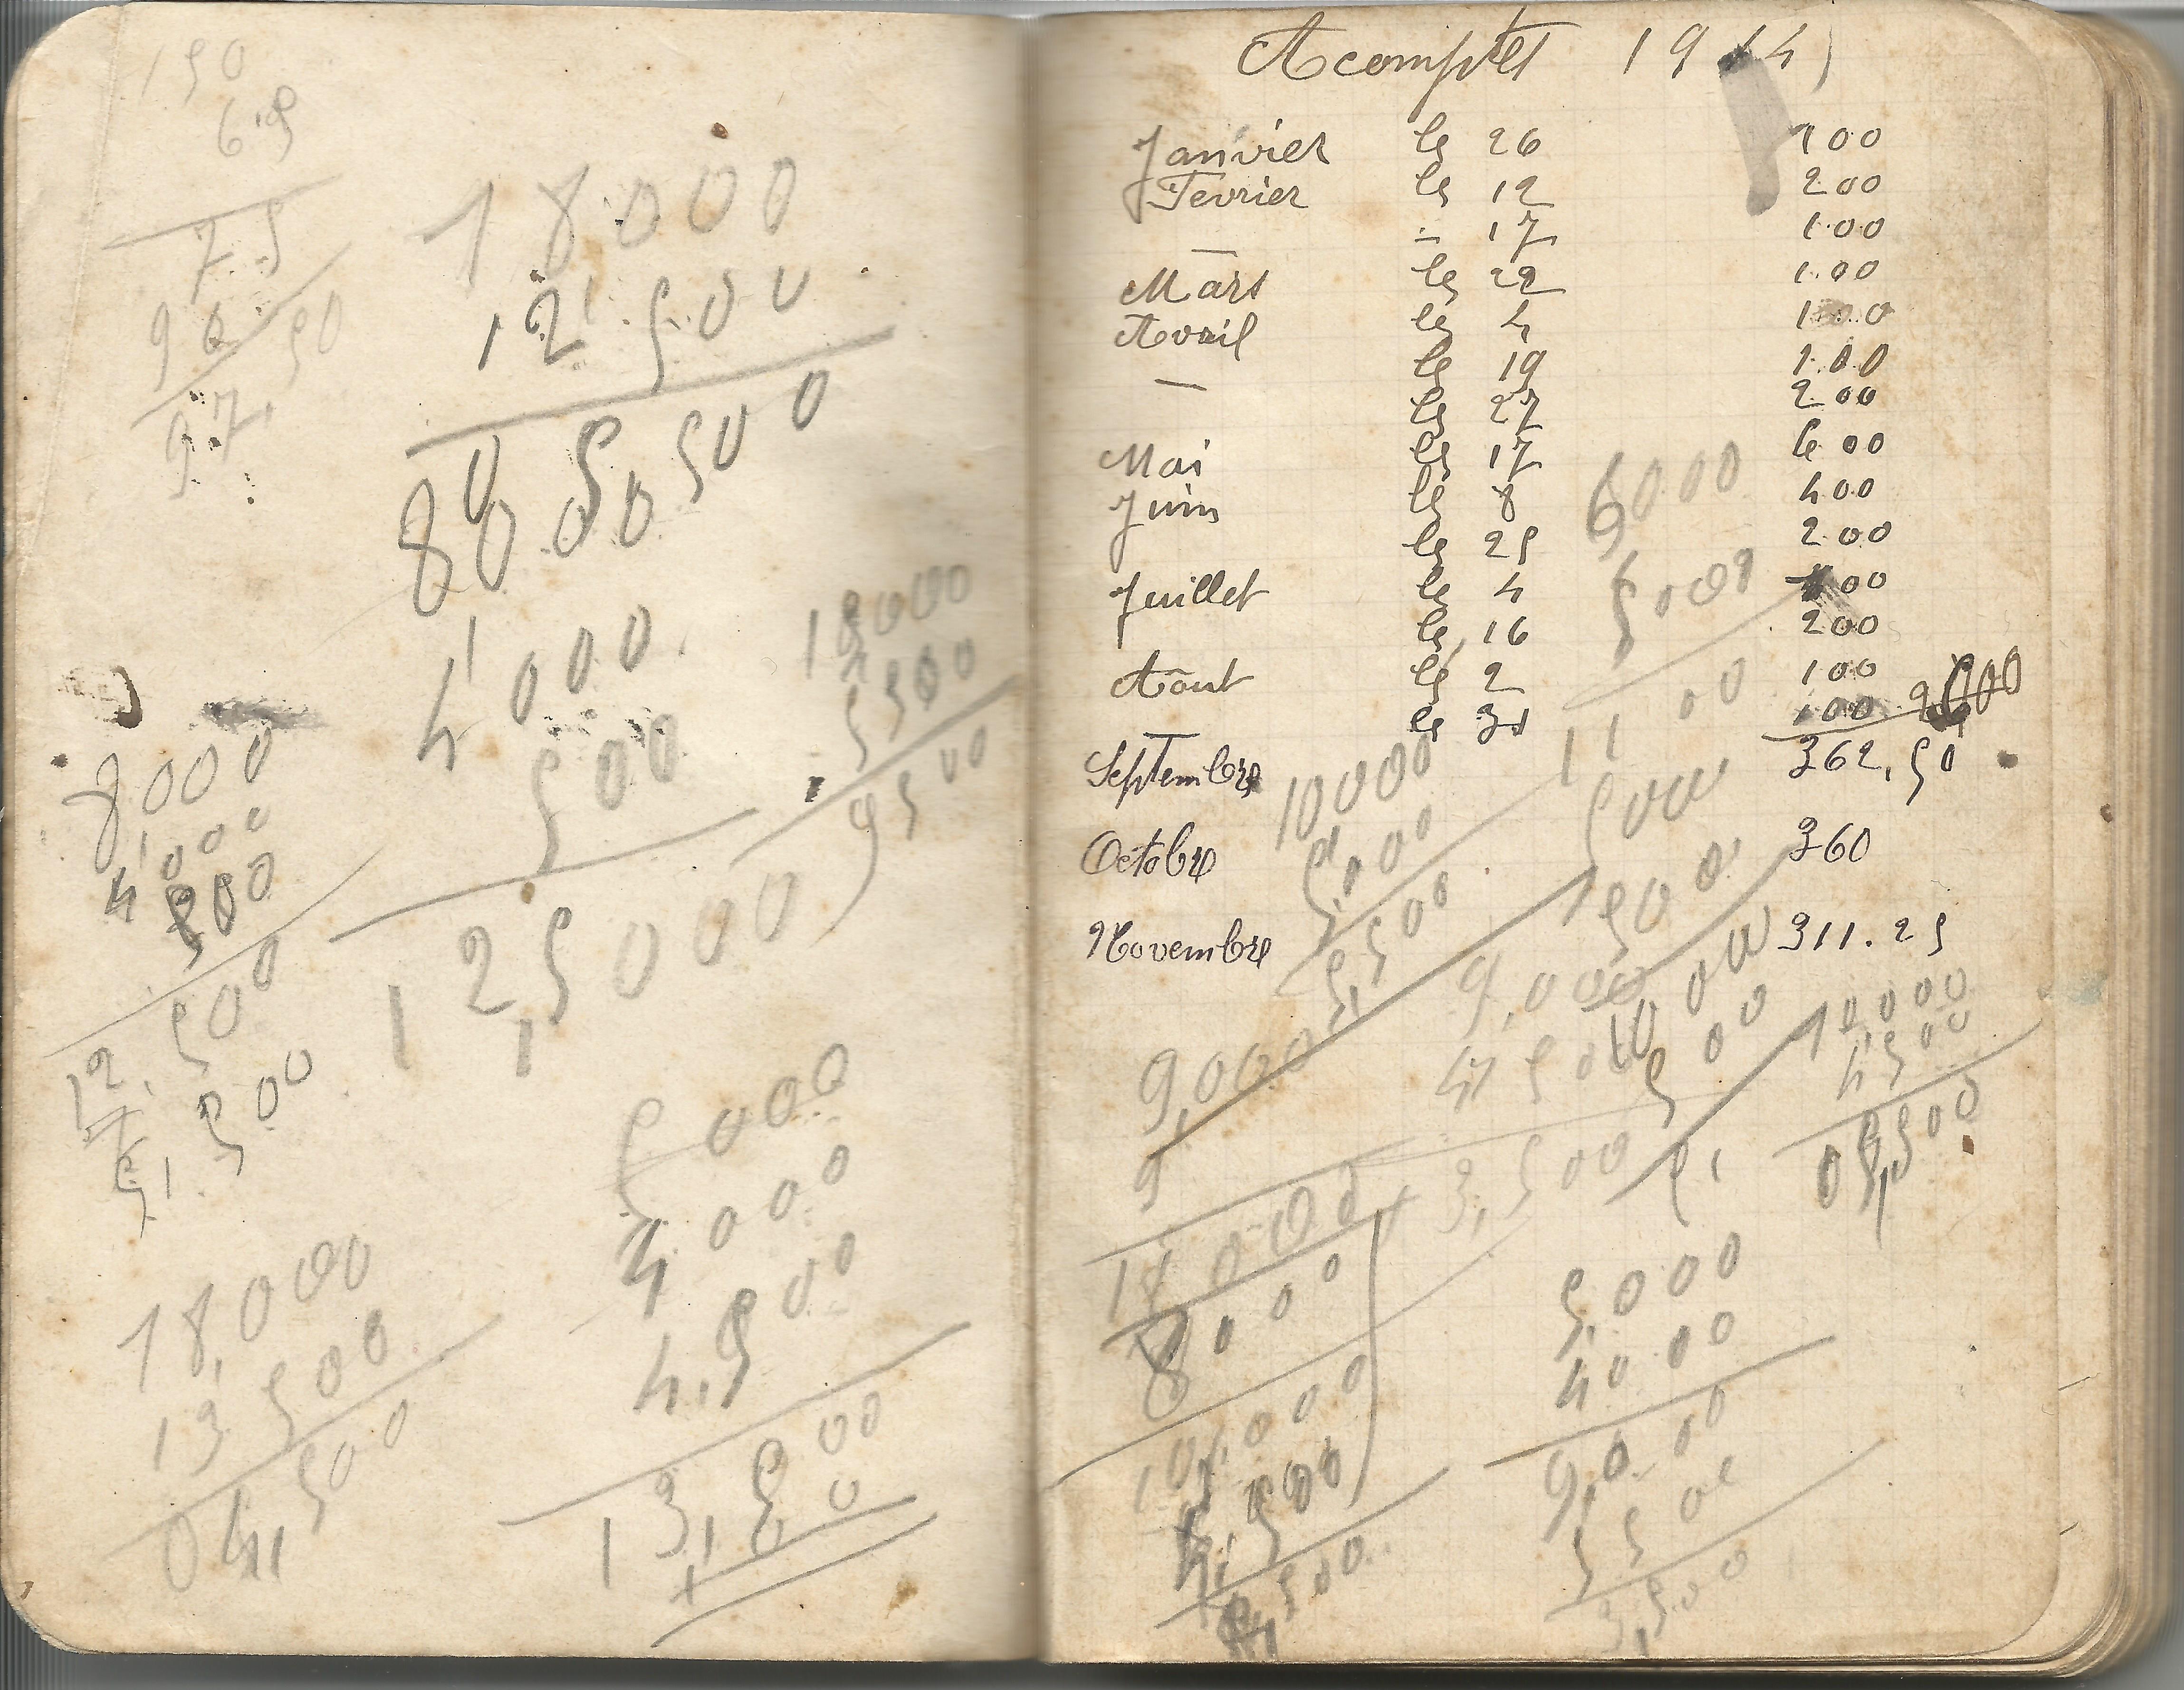 150
6.5
75
90
97,50
18000
12,500
80.500
4000
500
125000
18000
5500
9500
8000
4000
500
12,500
5,500
18,000
13 500
04,500
5000
4000
4,500
13,500
Acomptes 1914
Janvier le 26 100
Fevrier le 12 200
- 17 100
Mars le 22 100
Avril le 4 100
le 19 100
— le 27 200
Mai le 17 600
Juin le 8 400
le 25 200
Juillet le 4 100
le 16 200
Août le 2 100
le 31 100
Septembre 362,50
Octobre 360
Novembre 311.25
6000
5000
1100
10000
5,000
5,500
5000
500
9,000
9,000
4,500
3,500
10000
4500
05,500
9
18000
8000
10,000
4,500
5,500
5,000
4000
9,000
5500
3,500